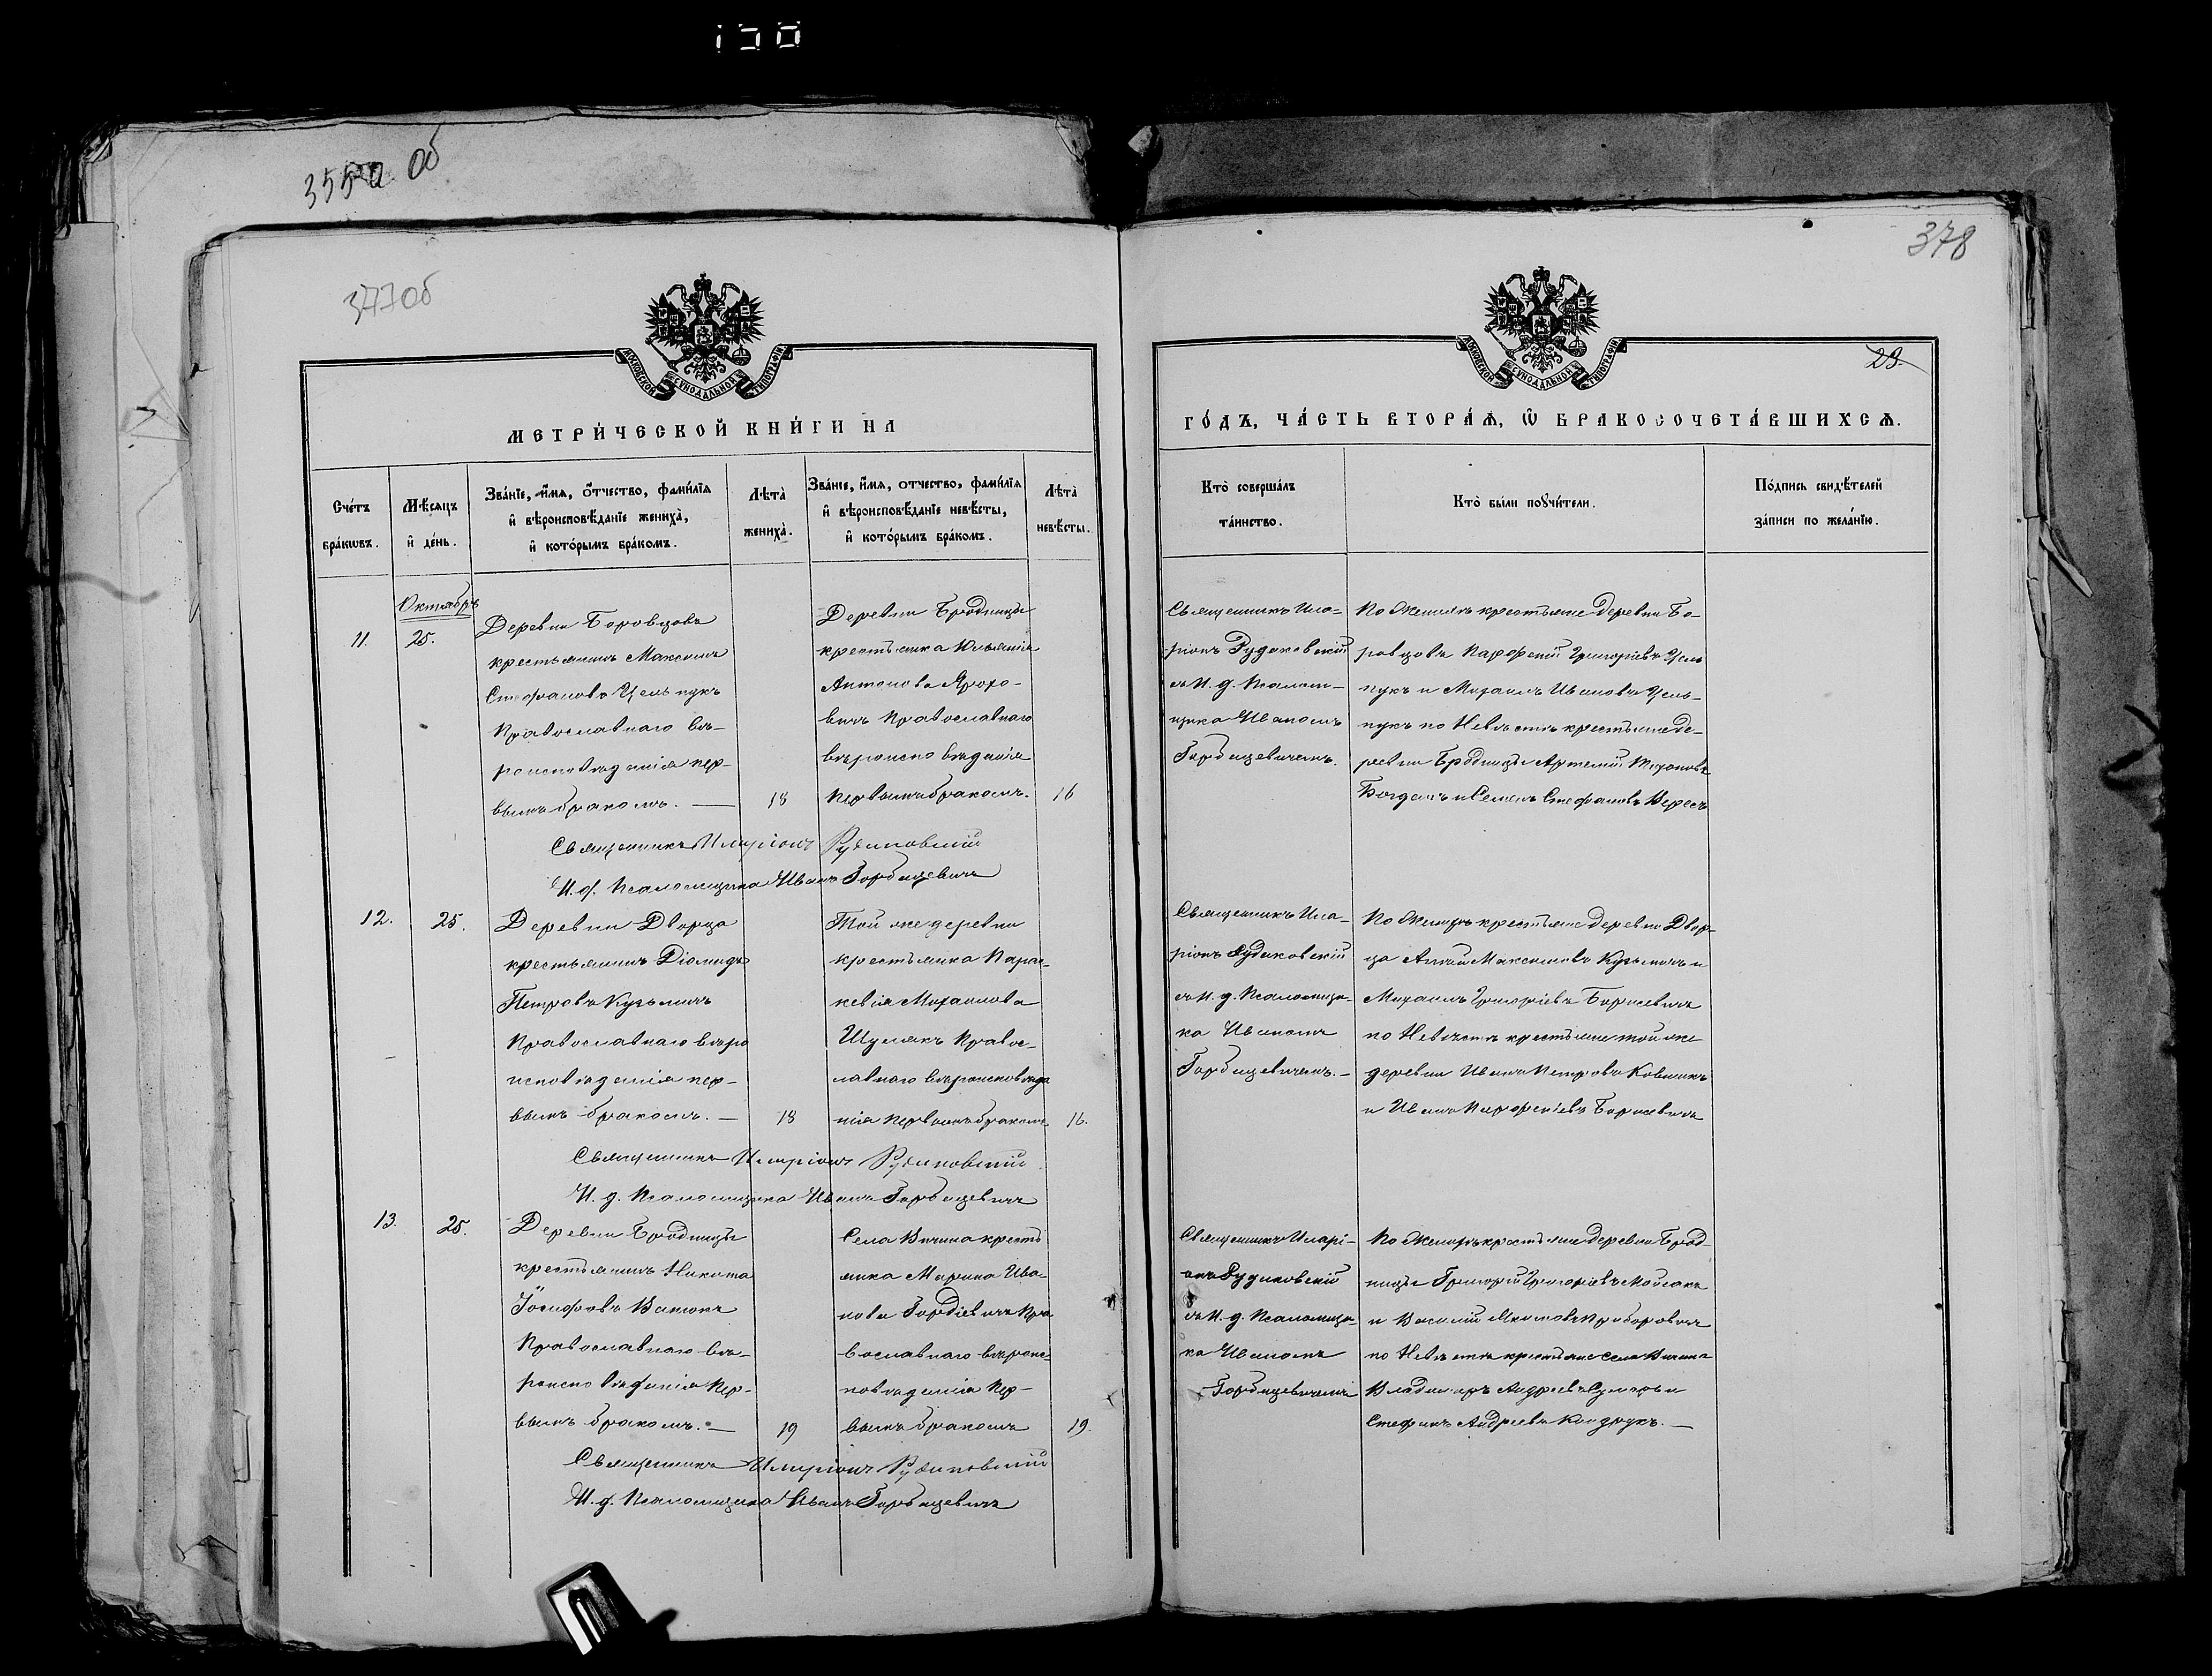 3550 об
377об
378
МОСКОВСКОЙ СѴНОДАЛЬНОЙ ТИПОГРАФІИ
МОСКОВСКОЙ СѴНОДАЛЬНОЙ ТИПОГРАФІИ
29.
МЕТРИ́ЧЕСКОЙ КНИ́ГИ НА
ГО́ДЪ, ЧА́СТЬ ВТОРА́Ѧ, Ѡ҆ БРАКОСОЧЕТА́ВШИХСѦ.
Сче́тъ
бра́кѡвъ.
Мѣ́сѧцъ
и҆ де́нь.
Зва́нїе, и҆́мѧ, о҆́тчество, фами́лїѧ
и҆ вѣроисповѣ́данїе жениха̀,
и҆ кото́рымъ бра́комъ.
Лѣта̀
жениха̀.
Зва́нїе, и҆́мѧ, отчество, фамі́лїѧ
и҆ вѣроисповѣ́данїе невѣ́сты,
и҆ кото́рымъ бра́комъ.
Лѣта̀
невѣ́сты.
Кто̀ соверша́лъ
та́инство.
Кто̀ бы́ли порꙋчи́тели.
По́дпись свидѣ́телей
за́писи по жела́нїю.
Октябрь
11.
25.
Деревни Боровцовъ
крестьянинъ Максимъ
Стефановъ Цельпукъ
Православнаго вѣ-
роисповѣданія пер-
вымъ бракомъ. —
18
Деревни Бродницы
крестьянка Юльянія
Антонова Ярохо-
вичъ Православнаго
вѣроисповѣданія
первымъ бракомъ.
16
Священникъ Ила-
ріонъ Рудаковскій
съ И. д. Псалом-
щика Иваномъ
Горбацевичемъ.
По Женихѣ крестьяне деревни Бо-
ровцовъ Парфеній Григоріевъ Цель
пукъ и Михаилъ Ивановъ Цель-
пукъ по Невѣстѣ крестьяне де-
ревни Бродницы Артемій
Богданъ и Семенъ Стефановъ Вересъ
Священникъ Иларіонъ Рудаковскій
И. д. Псаломщика Иванъ Горбацевичъ
12.
25.
Деревни Дворца
крестьянинъ Діомидъ
Петровъ Кузьмичъ
Православнаго вѣро
исповѣданія пер-
вымъ бракомъ. —
18
Той же деревни
крестьянка Парас-
кевія Михаилова
Шумякъ Правос-
лавнаго вѣроисповѣда
нія первымъ бракомъ
16.
Священникъ Ила-
ріонъ Рудаковскій
съ И. д. Псаломщи-
ка Иваномъ
Горбацевичемъ. -
По Женихѣ крестьяне деревни Двор-
ца Максимовъ Кузьмичъ и
Михаилъ Григоріевъ Борисевичъ
по Невѣстѣ крестьяне той же
деревни Иванъ Петровъ
и Иванъ Парфеніевъ Борисевичъ
Священникъ Иларіонъ Рудаковскій
И. д. Псаломщика Иванъ Горбацевичъ
13.
25.
Деревни Бродницы
крестьянинъ Никита
Іосифовъ
Православнаго вѣ-
роисповѣданія пер-
вымъ бракомъ. —
19
Села Вичина кресть
янка Марина Ива-
нова Гордіевичъ Пра
вославнаго вѣроис-
повѣданія пер-
вымъ бракомъ
19.
Священникъ Иларі-
онъ Рудаковскій
съ И. д. Псаломщи-
ка Иваномъ
Горбацевичемъ
По Женихѣ крестьяне деревни Брод-
ницы Григорій Григоріевъ
и Василій
по Невѣстѣ крестьяне села Вичина
Владиміръ Андреевъ и
Стефанъ Андреевъ Кондрукъ. —
Священникъ Иларіонъ Рудаковскій
И. д. Псаломщика Иванъ Горбацевичъ